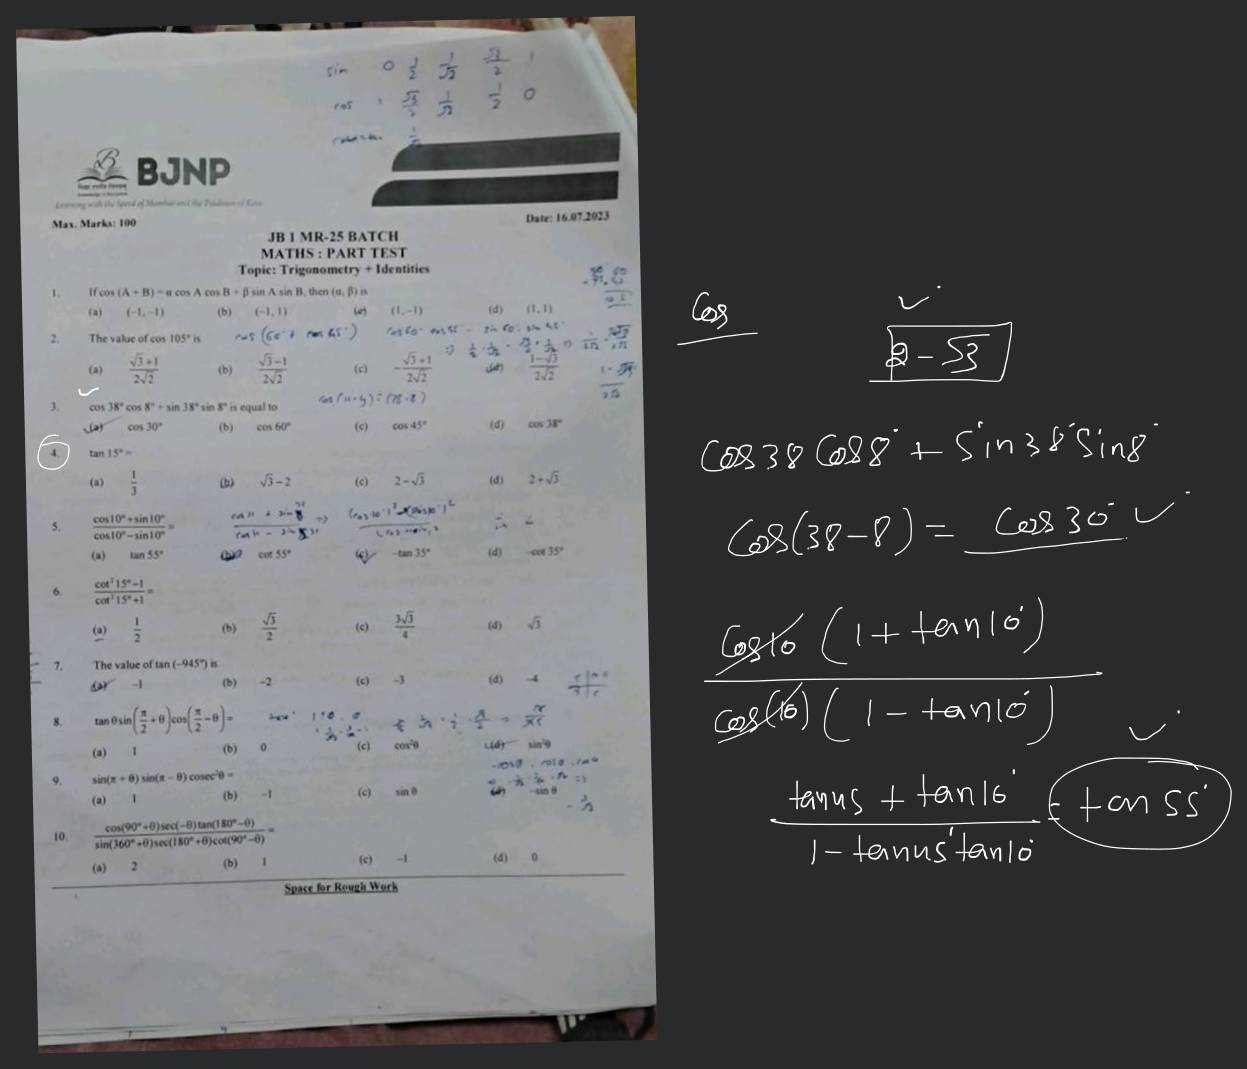 sin 0 1/2 1/√2 √3/2 1
cos √3/2 1/√2 1/2 0
BJNP
Learning with the Speed of Mumbai and the Tradition of Kota
Max. Marks: 100
Date: 16.07.2023
JB 1 MR-25 BATCH
MATHS : PART TEST
Topic: Trigonometry + Identities
1. If cos (A + B) = α cos A cos B + β sin A sin B, then (α, β) is
(a) (-1, -1) (b) (-1, 1) (c) (1, -1) (d) (1, 1)
2. The value of cos 105° is
(a) √3+1/2√2 (b) √3-1/2√2 (c) -√3+1/2√2 (d) 1-√3/2√2
3. cos 38° cos 8° + sin 38° sin 8° is equal to
(a) cos 30° (b) cos 60° (c) cos 45° (d) cos 38°
4. tan 15° =
(a) 1/3 (b) √3-2 (c) 2-√3 (d) 2+√3
5. cos10°+sin10°/cos10°-sin10° =
(a) tan 55° (b) cot 55° (c) -tan 35° (d) -cot 35°
6. cot²15°-1/cot²15°+1 =
(a) 1/2 (b) √3/2 (c) 3√3/4 (d) √3
7. The value of tan (-945°) is
(a) -1 (b) -2 (c) -3 (d) -4
8. tan θ sin(π/2+θ)cos(π/2-θ)=
(a) 1 (b) 0 (c) cos²θ (d) sin²θ
9. sin(π + θ) sin(π - θ) cosec²θ =
(a) 1 (b) -1 (c) sin θ (d) -sin θ
10. cos(90°+θ)sec(-θ)tan(180°-θ)/sin(360°+θ)sec(180°+θ)cot(90°-θ) =
(a) 2 (b) 1 (c) -1 (d) 0
Space for Rough Work
Cos
2-√3
Cos38 Cos8° + Sin38°Sin8°
Cos(38-8) = Cos30°
Cos10 (1+tan10°)
cos(10) (1-tan10°)
tan45 + tan10°
1-tan45°tan10° = tan 55°